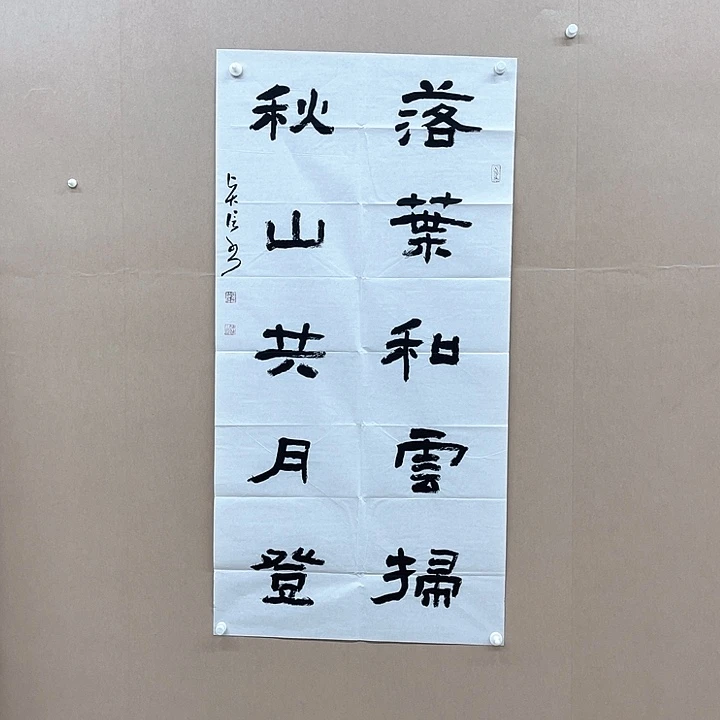 落葉和雲掃
秋山共月登